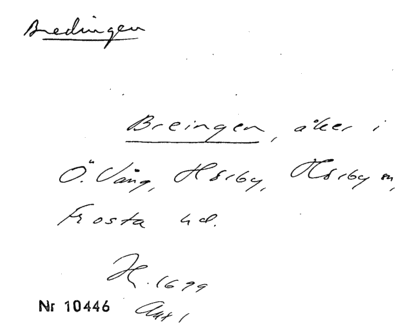 Bredingen
Breingen, åker i
Ö. Vång, Hörby, Hörby sn,
Frosta hd.
H. 1699
Akt 1
Nr 10446